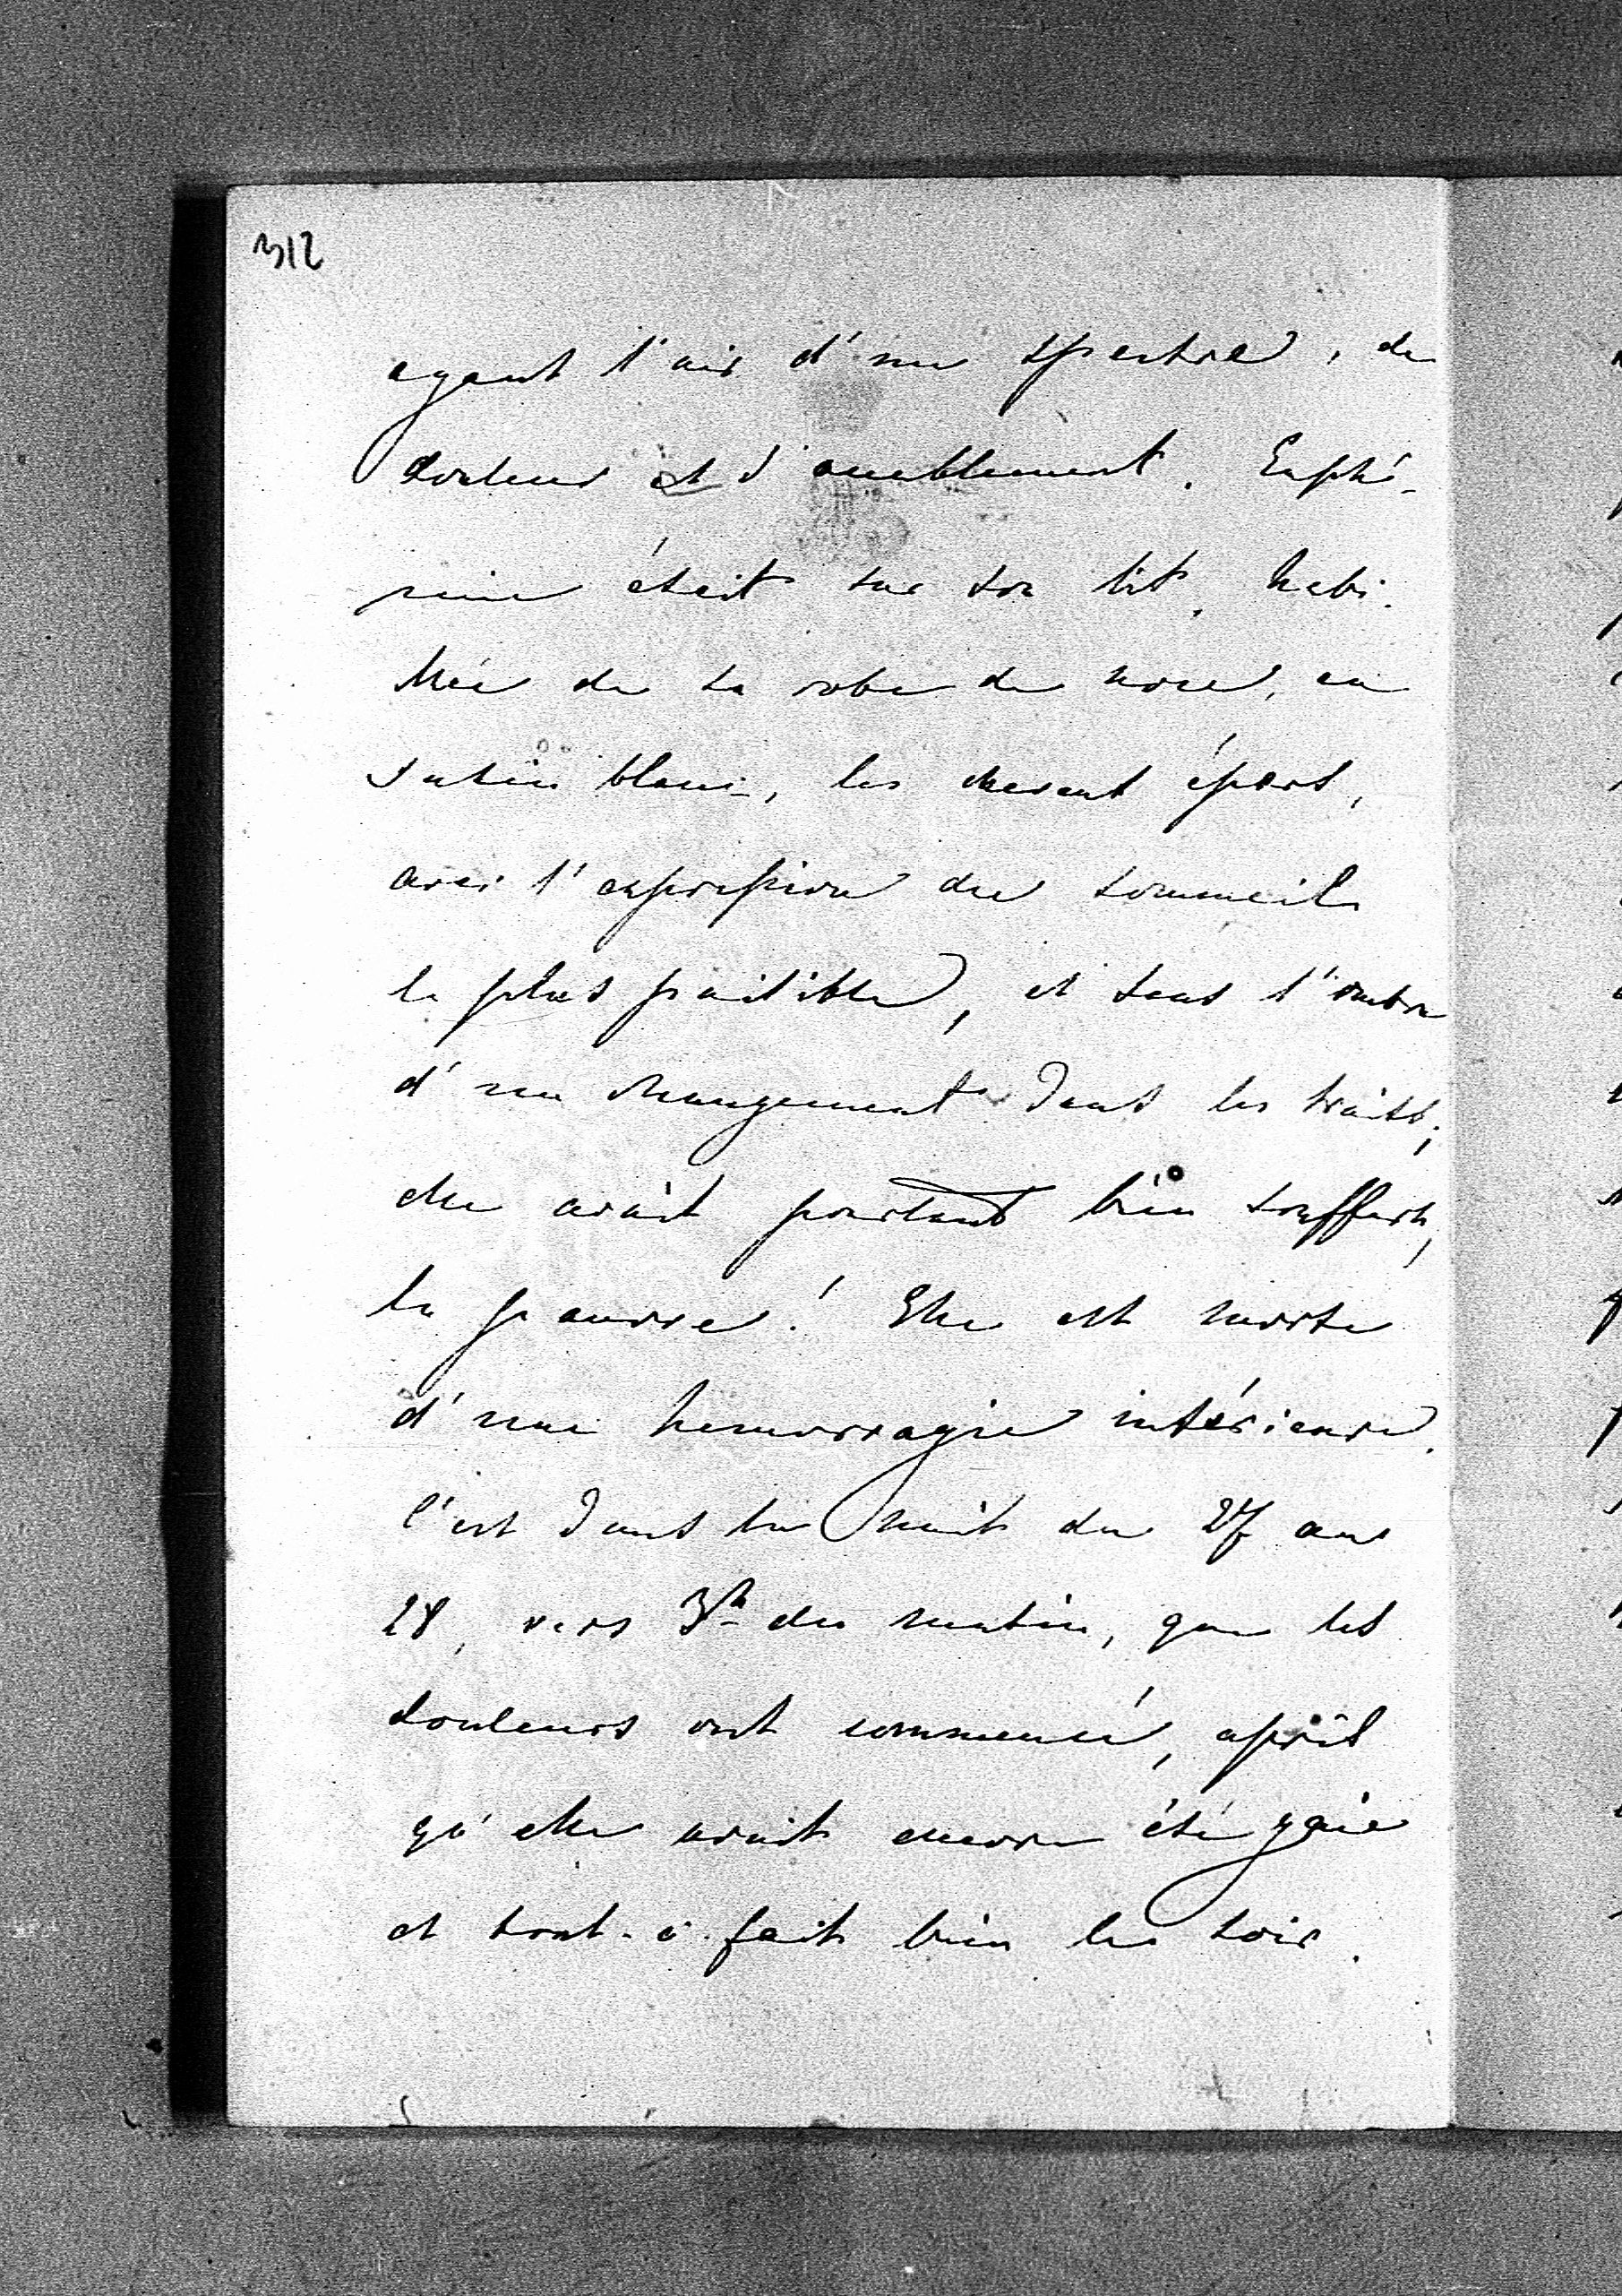 312
ayant l'air d'un spectre, de
douleur et d'accablement. Euphé-
mie était sur son lit, habi-
llée de sa robe de noce, en
satin blanc, les cheveux épars,
avec l'expression du sommeil
le plus paisible, et sans l'ombre
d'un changement dans les traits;
elle avait pourtant bien souffert,
la pauvre! Elle est morte
d'une hemorragie intérieure.
C'est dans la nuit du 27 au
28, vers 3h du matin, que les
douleurs ont commencé, après
qu'elle avait encore été gaie
et tout-à-fait bien le soir.